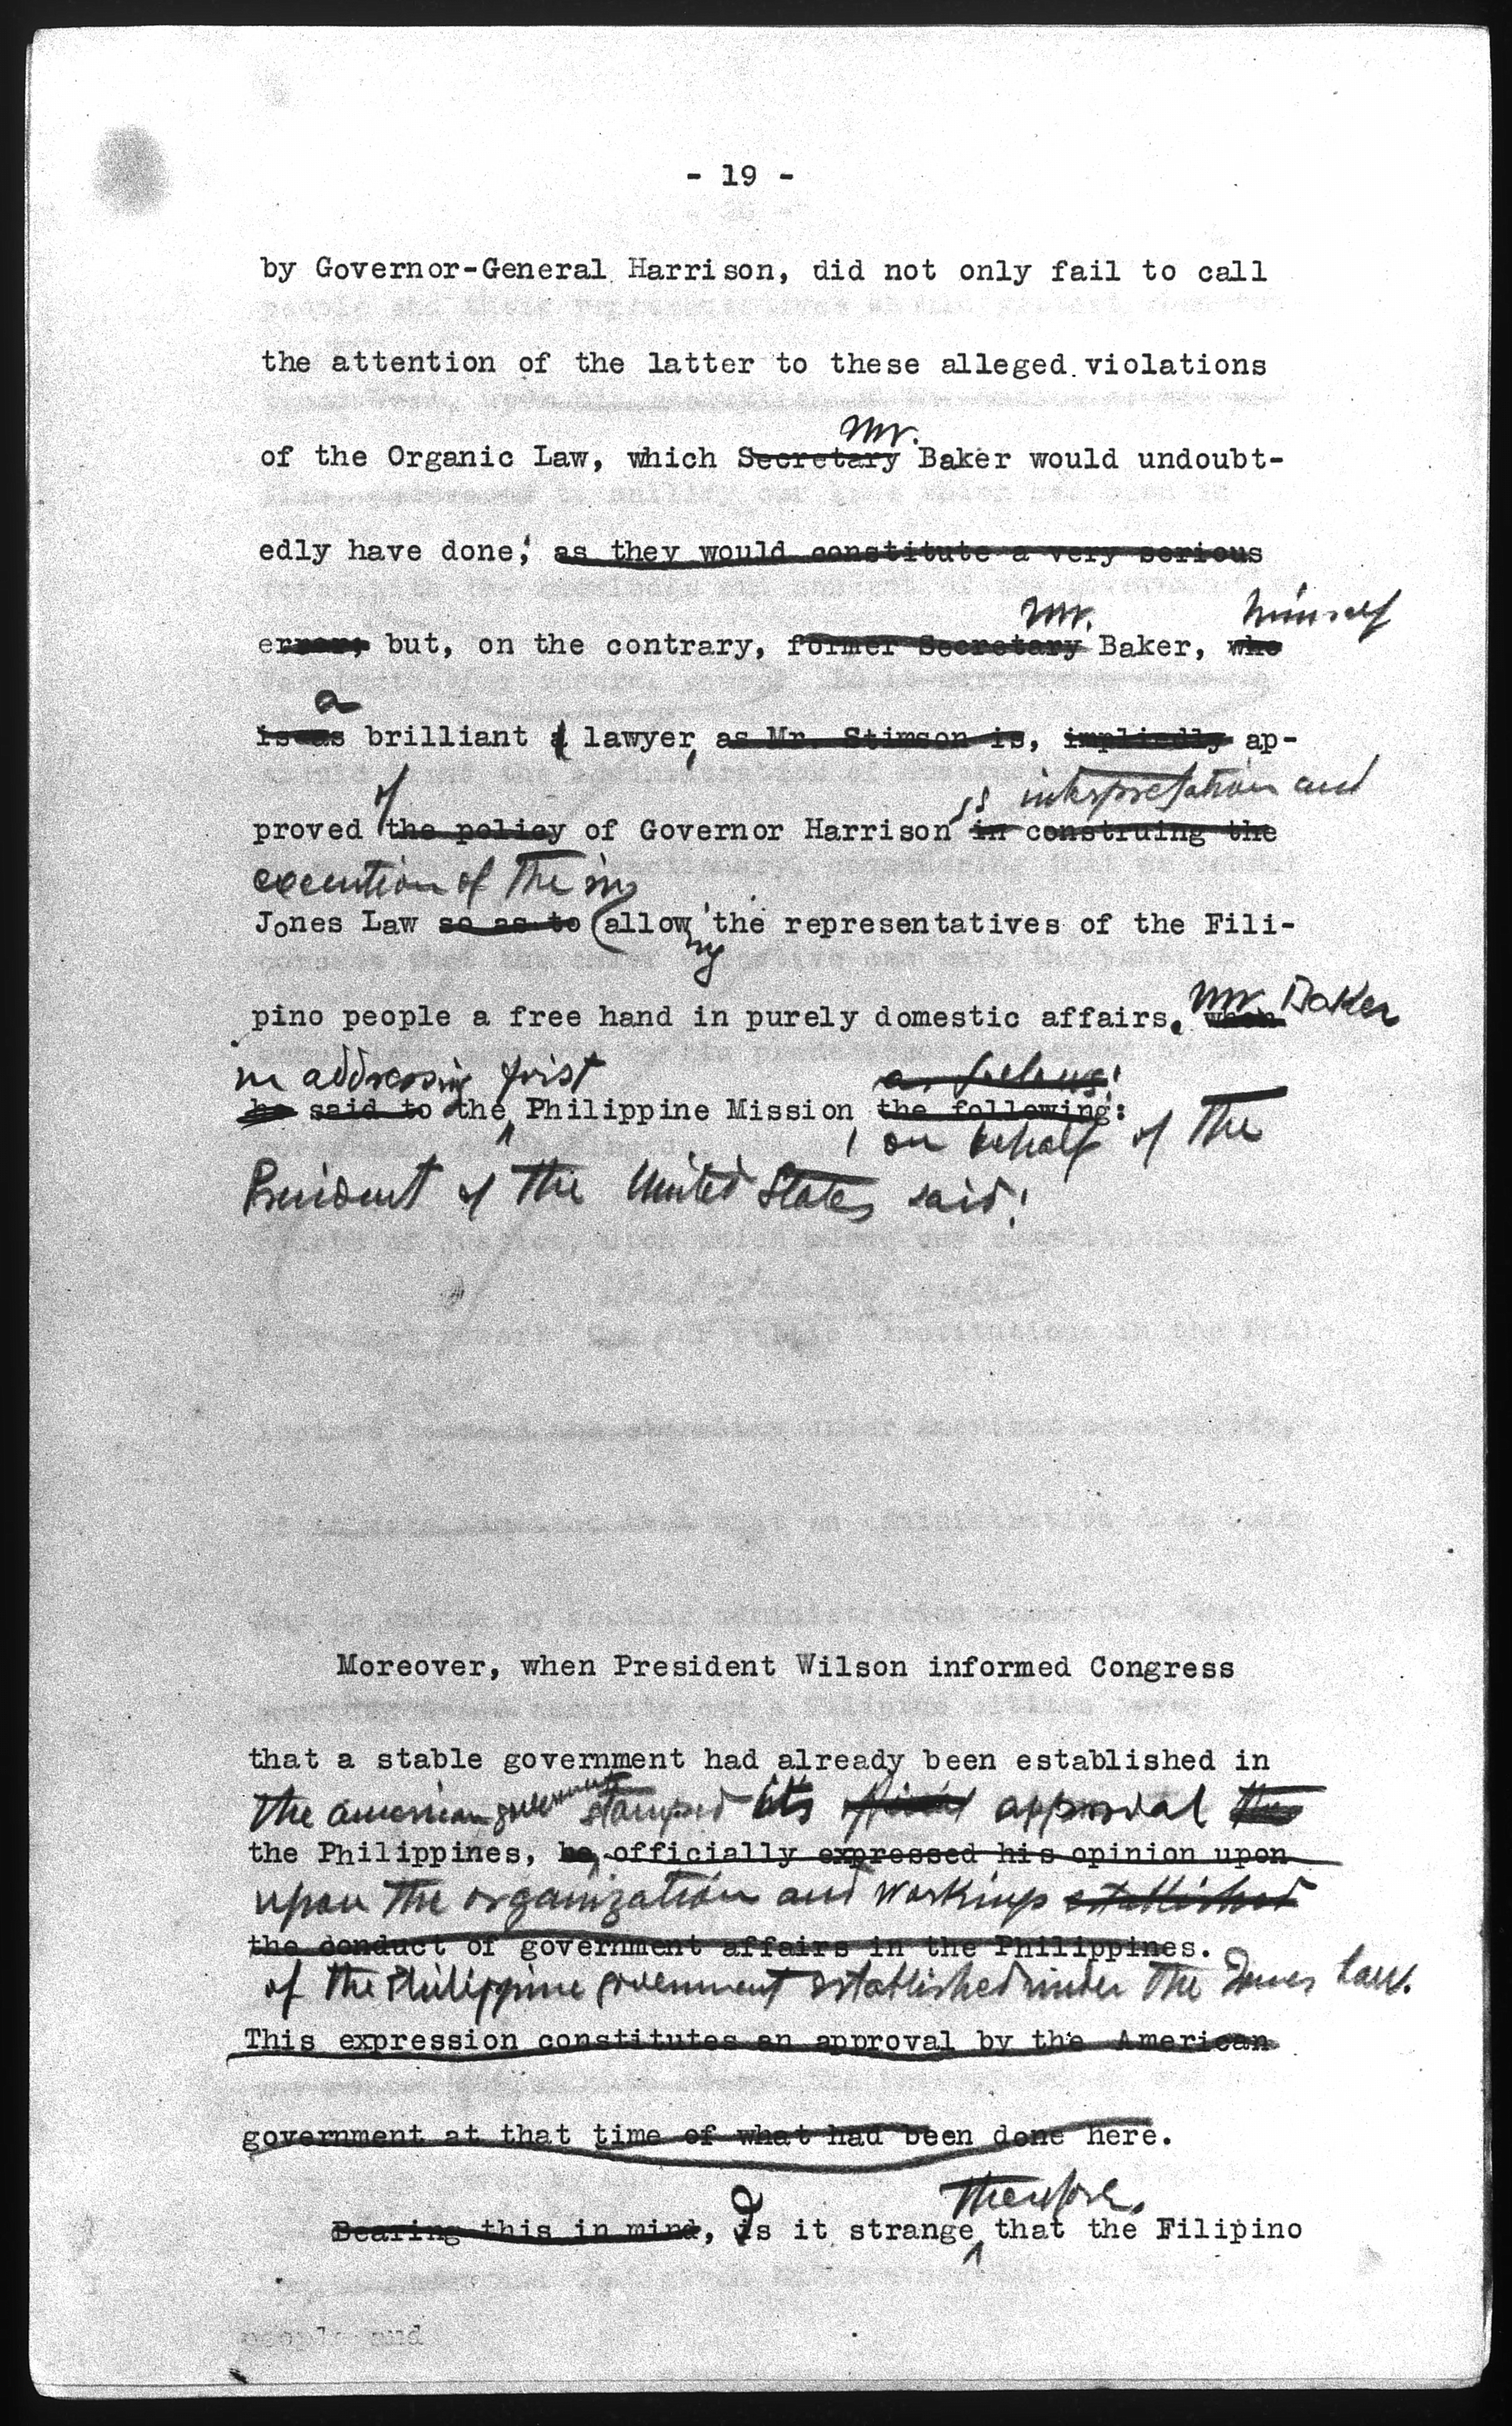 - 19 -
by Governor-General Harrison, did not only fail to call
the attention of the latter to these alleged violations
Mr.
of the Organic Law, which Secretary Baker would undoubt-
edly have done; as they would constitute a very serious
Mr. himself
error; but, on the contrary, former Secretary Baker, who
a
is as brilliant a lawyer, as Mr. Stimson is, impliedly ap-
of 's interpretation and
proved the policy of Governor Harrison in construing the
execution of the in
Jones Law so as to allow the representatives of the Fili-
ing
pino people a free hand in purely domestic affairs. when
Mr. Baker
in addressing first as follows:
he said to the Philippine Mission the following:
, on behalf of the
President of the United States said:
Moreover, when President Wilson informed Congress
that a stable government had already been established in
the American government stamped its official approval the
the Philippines, he officially expressed his opinion upon
upon the organization and workings established
the conduct of government affairs in the Philippines.
of the Philippine government established under the Jones Law.
This expression constitutes an approval by the American
government at that time of what had been done here.
therefore,
Bearing this in mind, Is it strange that the Filipino
people and